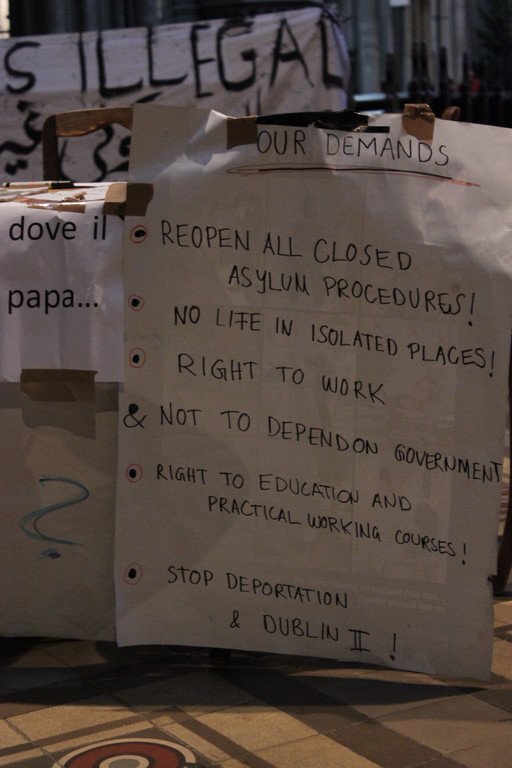 S ILLEGAL
dove il
papa...
OUR DEMANDS
REOPEN ALL CLOSED
ASYLUM PROCEDURES!
NO LIFE IN ISOLATED PLACES!
RIGHT TO WORK
& NOT TO DEPENDON GOVERNMENT
RIGHT TO EDUCATION AND
PRACTICAL WORKING COURSES!
STOP DEPORTATION
& DUBLIN II !